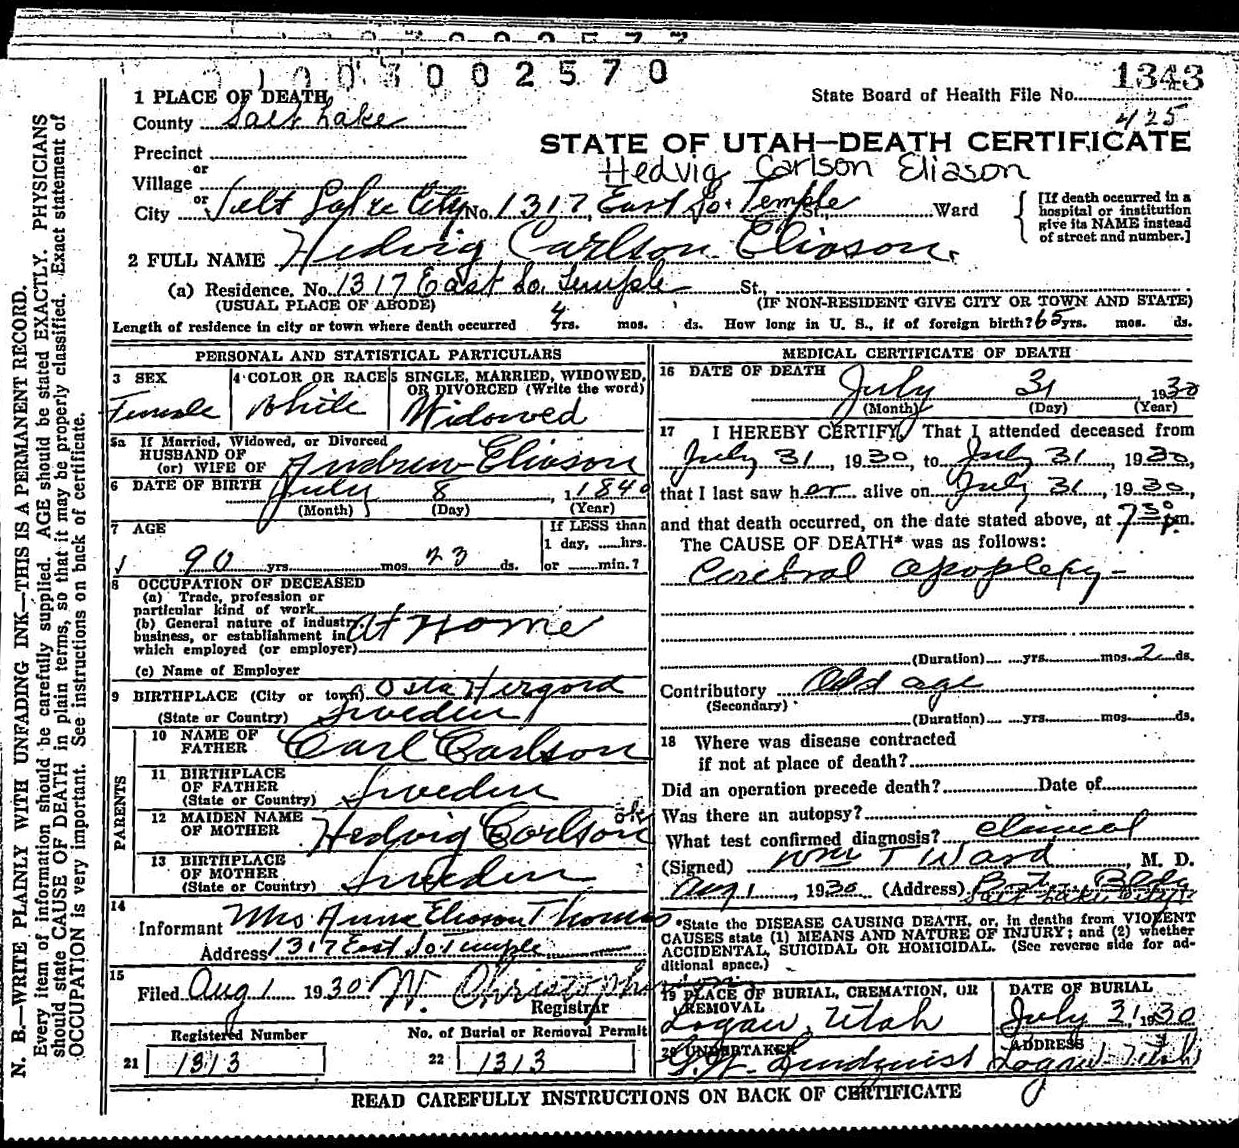 0 1 0 0 3 0 0 2 5 7 0
1343
1 PLACE OF DEATH
State Board of Health File No.
County Salt Lake
425
STATE OF UTAH—DEATH CERTIFICATE
Precinct
Hedvig Carlson Eliason
or
Village
or
City Salt Lake City No. 1317 East So. Temple St., Ward
[If death occurred in a hospital or institution give its NAME instead of street and number.]
2 FULL NAME Hedvig Carlson Eliason.
(a) Residence. No. 1317 East So. Temple St.,
(USUAL PLACE OF ABODE) (IF NON-RESIDENT GIVE CITY OR TOWN AND STATE)
Length of residence in city or town where death occurred 4 yrs. mos. ds. How long in U. S., if of foreign birth? 65 yrs. mos. ds.
PERSONAL AND STATISTICAL PARTICULARS
3 SEX
Female
4 COLOR OR RACE
White
5 SINGLE, MARRIED, WIDOWED, OR DIVORCED (Write the word)
Widowed
5a If Married, Widowed, or Divorced
HUSBAND OF
(or) WIFE OF Andrew Eliason
6 DATE OF BIRTH July 8, 1840
(Month) (Day) (Year)
7 AGE
90 yrs. mos. 23 ds.
If LESS than
1 day, hrs.
or min.?
8 OCCUPATION OF DECEASED
(a) Trade, profession or
particular kind of work
(b) General nature of industry,
business, or establishment in
which employed (or employer)
At Home
(c) Name of Employer
9 BIRTHPLACE (City or town)
(State or Country) Sweden
PARENTS
10 NAME OF FATHER Carl Carlson
11 BIRTHPLACE OF FATHER
(State or Country) Sweden
12 MAIDEN NAME OF MOTHER Hedvig Carlson ok
13 BIRTHPLACE OF MOTHER
(State or Country) Sweden
14
Informant Mrs Anna Eliason Thomas
Address 1317 East So. Temple
15
Filed Aug 1 1930 W. Christopherson
Registrar
Registered Number
21 1313
No. of Burial or Removal Permit
22 1313
MEDICAL CERTIFICATE OF DEATH
16 DATE OF DEATH
July 31 1930
(Month) (Day) (Year)
17 I HEREBY CERTIFY, That I attended deceased from
July 31, 1930, to July 31, 1930,
that I last saw her alive on July 31, 1930,
and that death occurred, on the date stated above, at 7 30 p.m.
The CAUSE OF DEATH* was as follows:
Cerebral apoplexy
(Duration) yrs. mos. 2 ds.
Contributory Old age
(Secondary)
(Duration) yrs. mos. ds.
18 Where was disease contracted
if not at place of death?
Did an operation precede death? Date of
Was there an autopsy?
What test confirmed diagnosis? Clinical
(Signed) Wm T Ward, M. D.
Aug 1, 1930 (Address) Bldg
Salt Lake City
*State the DISEASE CAUSING DEATH, or, in deaths from VIOLENT
CAUSES state (1) MEANS AND NATURE OF INJURY; and (2) whether
ACCIDENTAL, SUICIDAL OR HOMICIDAL. (See reverse side for ad-
ditional space.)
19 PLACE OF BURIAL, CREMATION, OR REMOVAL
Logan, Utah
DATE OF BURIAL
July 31 1930
20 UNDERTAKER
Lindquist
ADDRESS
Logan Utah
READ CAREFULLY INSTRUCTIONS ON BACK OF CERTIFICATE
N. B.—WRITE PLAINLY WITH UNFADING INK—THIS IS A PERMANENT RECORD.
Every item of information should be carefully supplied. AGE should be stated EXACTLY. PHYSICIANS
should state CAUSE OF DEATH in plain terms, so that it may be properly classified. Exact statement of
OCCUPATION is very important. See instructions on back of certificate.